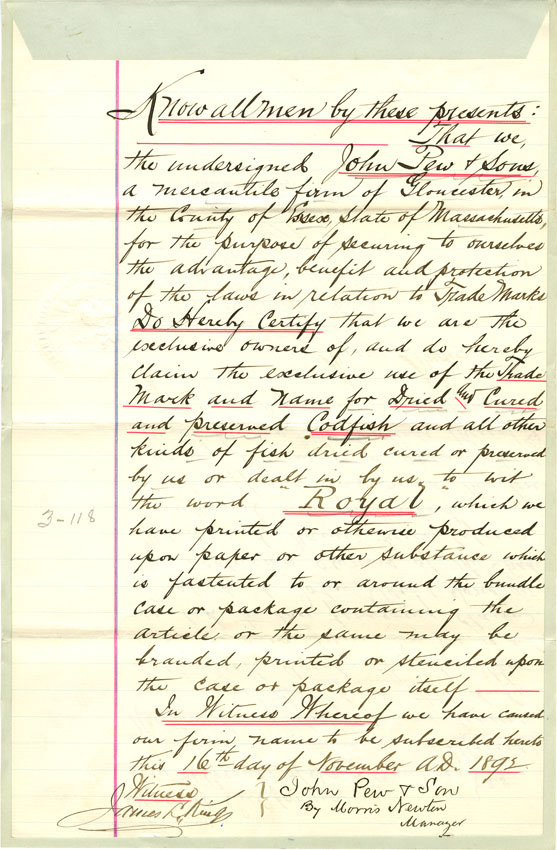 Know all men by these presents:
That we,
the undersigned John Pew & Sons,
a mercantile firm of Gloucester, in
the County of Essex, State of Massachusetts,
for the purpose of securing to ourselves
the advantage, benefit and protection
of the laws in relation to Trade Marks
Do Hereby Certify that we are the
exclusive owners of, and do hereby
claim the exclusive use of the Trade
Mark and Name for Dried and Cured
and preserved Codfish and all other
kinds of fish dried cured or preserved
by us or dealt in by us, to wit
the word "Royal", which we
have printed or otherwise produced
upon paper or other substance which
is fastented to or around the bundle
case or package containing the
article, or the same may be
branded, printed or stenciled upon
the case or package itself
In Witness Whereof we have caused
our firm name to be subscribed hereto
this 16th day of November A.D. 1892
Witness } John Pew & Son
James C. King By Morris Newton
Manager
3-118